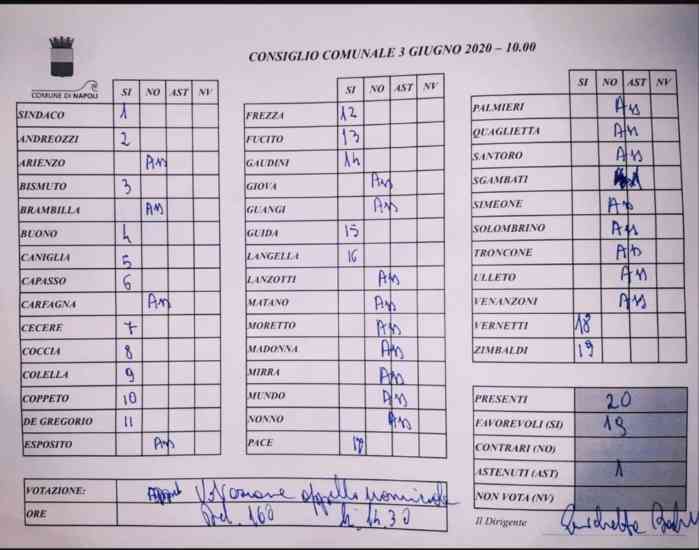 CONSIGLIO COMUNALE 3 GIUGNO 2020 – 10.00
COMUNE DI NAPOLI
SI NO AST NV
SINDACO 1
ANDREOZZI 2
ARIENZO As
BISMUTO 3
BRAMBILLA As
BUONO 4
CANIGLIA 5
CAPASSO 6
CARFAGNA As
CECERE 7
COCCIA 8
COLELLA 9
COPPETO 10
DE GREGORIO 11
ESPOSITO As
SI NO AST NV
FREZZA 12
FUCITO 13
GAUDINI 14
GIOVA As
GUANGI As
GUIDA 15
LANGELLA 16
LANZOTTI As
MATANO As
MORETTO As
MADONNA As
MIRRA As
MUNDO As
NONNO As
PACE 17
SI NO AST NV
PALMIERI As
QUAGLIETTA As
SANTORO As
SGAMBATI
SIMEONE As
SOLOMBRINO As
TRONCONE As
ULLETO As
VENANZONI As
VERNETTI 18
ZIMBALDI 19
PRESENTI 20
FAVOREVOLI (SI) 19
CONTRARI (NO)
ASTENUTI (AST) 1
NON VOTA (NV)
VOTAZIONE: Votazione appello nominale
ORE 160 h. 14.30
Il Dirigente